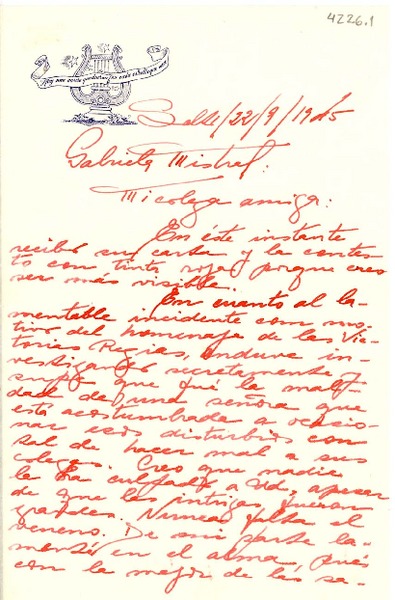 4226.1
Hoy una
22/9/1945
Gabriela Mistral.
Mi colega amiga:
En éste instante
recibo su carta y la contes-
to con tinta roja porque creo
ser más visible.
En cuanto al la-
mentable incidente con mo-
tivo del homenaje de las Vic-
torias Regias, anduve in-
vestigando secretamente y
supe que fué la mal-
dad de una señora que
está acostumbrada a ocasio-
nar esos disturbios con
tal de hacer mal a sus
colegas. Creo que nadie
la ha culpado a Ud., apesar
de que las intrigas fueron
grandes. Nunca falta el
veneno. De mi parte la-
menté en el alma, pués
con la mejor de las sa-